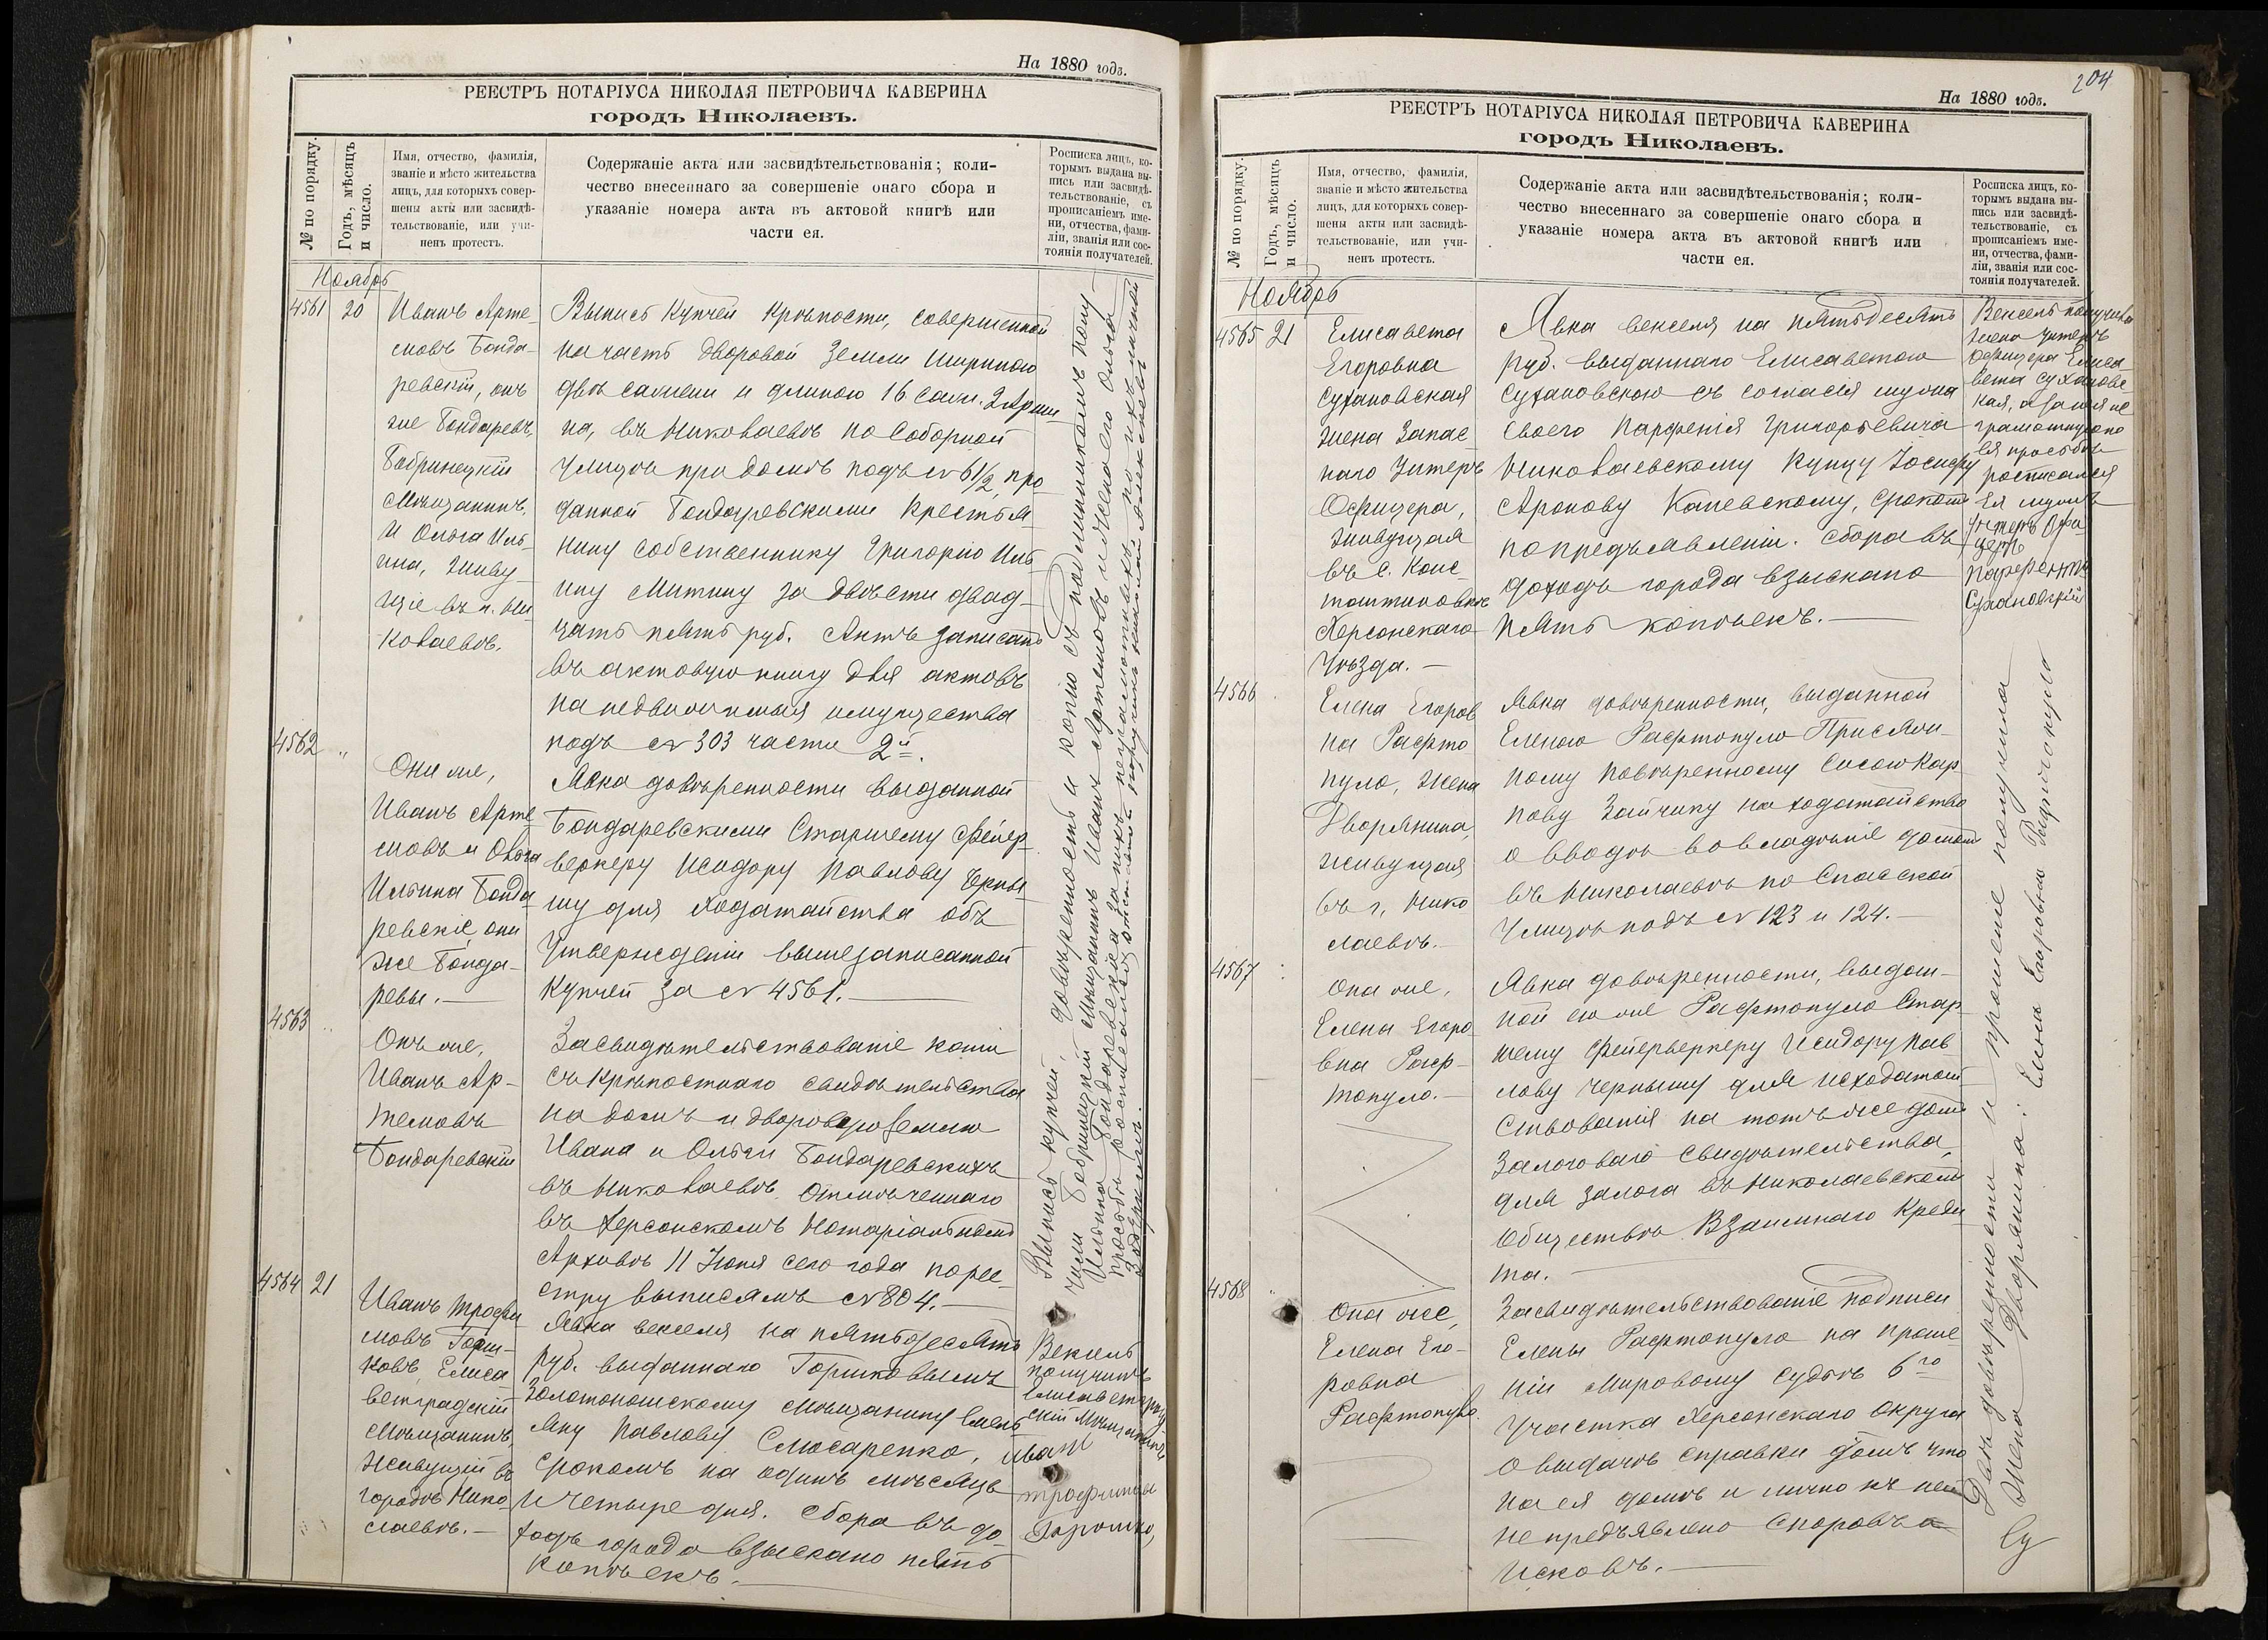 На 1880 годъ.
РЕЕСТРЪ НОТАРІУСА НИКОЛАЯ ПЕТРОВИЧА КАВЕРИНА
городъ Николаевъ.
№ по порядку.
Годъ, мѣсяцъ
и число.
Имя, отчество, фамилія,
званіе и мѣсто жительства
лицъ, для которыхъ совер-
шены акты или засвидѣ-
тельствованіе, или учи-
ненъ протестъ.
Содержаніе акта или засвидѣтельствованія; коли-
чество внесеннаго за совершеніе онаго сбора и
указаніе номера акта въ актовой книгѣ или
части ея.
Росписка лицъ, ко-
торымъ выдана вы-
пись или засвидѣ-
тельствованіе, съ
прописаніемъ име-
ни, отчества, фами-
ліи, званія или сос-
тоянія получателей.
Ноябрь
4561
20
Иванъ Арте-
мовъ Бонда-
ревскій, онъ
же Бондаревъ,
Бобринецкій
Мѣщанинъ,
И Ольга Иль-
ина, живу-
щіе въ г. Ни
колаевѣ.
Выпись Купчей Крѣпости, совершенной
на часть дворовой земли шириною
двѣ сажени и длиною 16 саж. 2 Арши
на, въ Николаевѣ по Соборной
Улицѣ при домѣ подъ № 61/2, про
данной Бондаревскими Крестья
нину собственнику Григорію Иль-
ину Митину за двѣсти двад-
цать пять руб. Актъ записанъ
въ актовую книгу для актовъ
на недвижимыя имущества
подъ № 303 части 2й.
4562
"
Они же,
Иванъ Арте
мовъ и Ольга
Ильина Бонда
ревскіе, они
же Бонда-
ревы.—
Явка довѣренности выданной
Бондаревскими Старшему Фейер-
веркеру Исидору Павлову Черны
шу для ходатайства объ
Утвержденіи вышезаписанной
Купчей за № 4561.—
4563
"
Онъ же,
Иванъ Ар-
темовъ
Бондаревскій
Засвидѣтельствованіе копіи
съ крѣпостнаго свидѣтельства
на домъ и дворовую землю
Ивана и Ольги Бондаревскихъ
въ Николаевѣ, отмѣченнаго
въ Херсонскомъ Нотаріальномъ
Архивѣ 11 Іюня сего года по рее-
стру выписямъ № 804.—
Выпись купчей, довѣренность и копію съ подлинникомъ полу-
чили Бобринецкій мѣщанинъ Иванъ Артемовъ и жена его Ольга
Ильина Бондаревскіе, а за нихъ неграмотныхъ, по ихъ личной
просьбѣ росписался
4564
21
Иванъ Трофи
мовъ Горш-
ковъ, Елиса
ветградскій
Мѣщанинъ,
живущій въ
городѣ Нико-
лаевѣ.—
Явка векселя на пятьдесятъ
руб. выданнаго Горшковымъ
Золотоношскому мѣщанину Емель
яну Павлову Слюсаренко,
срокомъ на одинъ мѣсяцъ
и четыре дня. Сбора въ до-
ходъ города взыскано пять
копѣекъ.—
Вексель
получилъ
Елисаветград
скій Мѣщанинъ,
Иванъ
трофимовъ
204
На 1880 годъ.
РЕЕСТРЪ НОТАРІУСА НИКОЛАЯ ПЕТРОВИЧА КАВЕРИНА
городъ Николаевъ.
№ по порядку.
Годъ, мѣсяцъ
и число.
Имя, отчество, фамилія,
званіе и мѣсто жительства
лицъ, для которыхъ совер-
шены акты или засвидѣ-
тельствованіе, или учи-
ненъ протестъ.
Содержаніе акта или засвидѣтельствованія; коли-
чество внесеннаго за совершеніе онаго сбора и
указаніе номера акта въ актовой книгѣ или
части ея.
Росписка лицъ, ко-
торымъ выдана вы-
пись или засвидѣ-
тельствованіе, съ
прописаніемъ име-
ни, отчества, фами-
ліи, званія или сос-
тоянія получателей.
Ноябрь
4565
21
Елисавета
Егоровна
Сухановская
жена Запас
наго Унтеръ
Офицера,
живущая
въ с. Конс-
тантиновкѣ
Херсонскаго
Уѣзда.—
Явка векселя на пятьдесятъ
руб. выданнаго Елисаветою
Сухановскою съ согласія мужа
своего Парфенія Григорьевича
Николаевскому Купцу Іосифу
Аронову Каневскому, срокомъ
по предъявленіи. Сбора въ
доходъ города взыскано
пять копѣекъ.—
Вексель получила
жена унтеръ
офицера Елиса
вета Сухановс-
кая, а за нея не
грамотную по
ея просьбѣ
росписался
Ея мужъ
унтеръ Офи
церъ
Парфентій
Сухановскій
4566
Елена Егоров
на Рафто
пуло, жена
Дворянина,
живущая
въ г. Нико
лаевѣ.—
Явка довѣренности, выданной
Еленою Рафтопуло Присяж-
ному повѣренному Сысою Кар
пову Зайчику на ходатайство
о вводѣ во владѣніе домомъ
въ Николаевѣ по Спасской
Улицѣ подъ № 123 и 124.—
4567
"
Она же,
Елена Егоро
вна Раф-
топуло.—
Явка довѣренности, выдан-
ной ею же Рафтопуло Стар
шему Фейерверкеру Исидору Пав
лову Чернышу для исходатай
ствованія на тотъ же домъ
Залоговаго свидѣтельства,
для залога въ Николаевскомъ
Обществѣ Взаимнаго Креди
та.—
4568
"
Она же,
Елена Его-
ровна
Рафтопуло.
Засвидѣтельствованіе подписи
Елены Рафтопуло на проше
ніи Мировому Судьѣ 6го
Участка Херсонскаго Округа
о выдачѣ справки о томъ что
на ея домъ и лично къ ней
не предъявлено споровъ и
исковъ.—
Двѣ довѣренности и прошеніе получила
Жена Дворянина: Елена Егоровна Рафтопуло